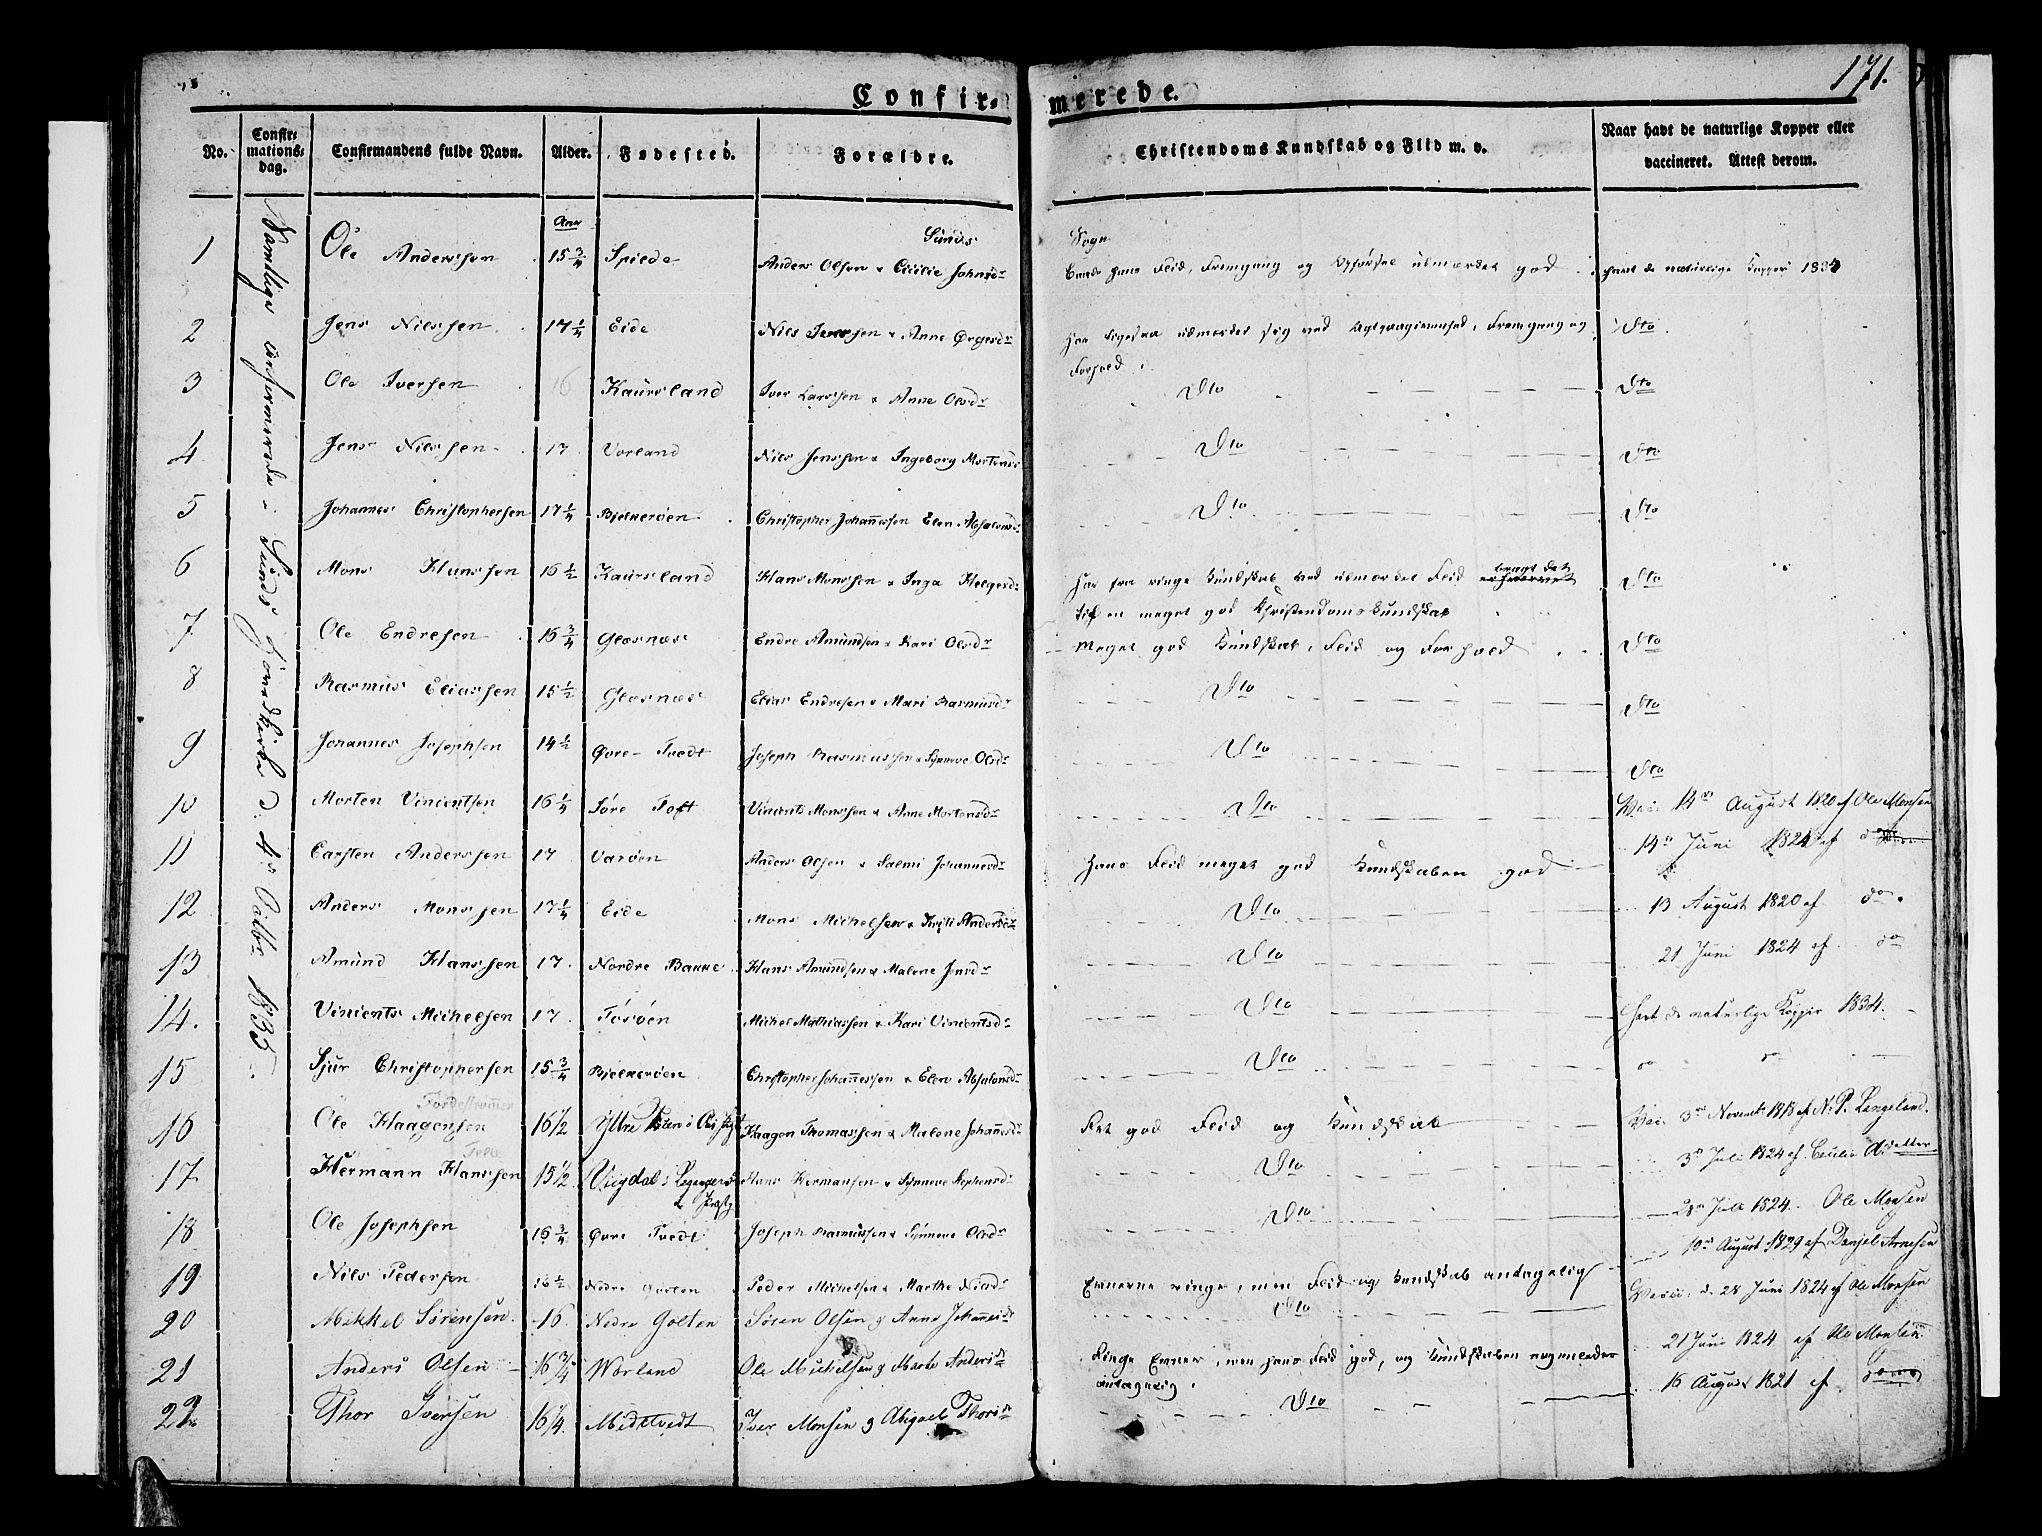 171.
Confir- merede.
No. Confir- mations- dag. Confirmandens fulde Navn. Alder. Fødested. Forældre. Christendoms Kundskab og Flid m. v. Naar havt de naturlige Kopper eller vaccineret. Attest derom.
Samtlige confirmerede i Sunds Hovedkirke d. 4de Octbr 1835.
Aar
Sunds Sogn
1 Ole Anderssen 15 3/4 Spilde Anders Olsen & Cicilie Johnsdr Flid, Fremgang og Opførsel udmærket god havt de naturlige Kopper 1834
2 Jens Nilssen 17 1/4 Eide Nils Jenssen & Anne Ørgersdr har ligesaa udmærket sig ved Fremgang og Forhold. Dto
3 Ole Iversen 16 Kaursland Iver Larssen & Anne Olsdr Dto Dto
4 Jens Nilssen 17 Vorland Nils Jenssen & Ingeborg Mortensd Dto Dto
5 Johannes Christophersen 17 1/4 Bjelkerøen Christopher Johannssen Elen Absalonsd Dto Dto
6 Mons Hanssen 16 1/2 Kaursland Hans Monssen & Inga Helgesd har fra ringe Kundskab ved udmærket Flid bragt det
til en meget god Christendomskundskab Dto
7 Ole Endresen 16 3/4 Glesnæs Endre Amundsen & Kari Olsdr Meget god Kundskab, Flid og Forhold Dto
8 Rasmus Eliassen 15 1/2 Glesnæs Elias Endresen & Mari Rasmusdr Dto Dto
9 Johannes Josephsen 14 1/2 Øvre Tvedt Joseph Rasmussen & Synneve Olsdr Dto Dto
10 Morten Vincentsen 16 1/4 Søre Toft Vincents Monssen & Anne Mortensdr Dto Vac. 14de August 1820 af Ole Monsen
11 Carsten Anderssen 17 Varøen Anders Olsen & Salmi Johannesdr Hans Flid meget god Kundskaben god 19de Juni 1824 af do
12 Anders Monssen 17 1/4 Eide Mons Michelsen & Kristi Andersdr Dto 13 August 1820 af do
13 Amund Hanssen 17 Nordre Bakke Hans Amundsen & Malene Jensdr Dto 21 Juni 1824 af do
14. Vincents Michelsen 17 Tøsøen Michel Mathiassen & Kari Vincentsdr Dto havt de naturlige Kopper 1834.
15 Sjur Christophersen 15 3/4 Bjelkerøen Christopher Johannessen & Elen Absalonsdr Dto do do
16 Ole Haagensen 16 1/2 Ytre Haagen Thomassen & Malene Johannesdr Ret god Flid og Kundskab Vac. 3de Novembr 1818 af N. P. Langeland.
17 Hermann Hanssen 15 1/2 Vigdal i Hans Hermansen & Synneve Stephensdr Dto 3de Juli 1824 af Cecilie
18 Ole Josephsen 16 3/4 Øvre Tvedt Joseph Rasmussen & Synneve Olsdr Dto 28de Juli 1824. Ole Monsen
19 Nils Pedersen 16 1/2 Nedre Golten Peder Michelsen & Marthe Nilsdr Evnerne ringe, men Flid og Kundskab antagelig 10de August 1829 af Danjel Arnesen
20 Mikkel Sørensen 16 Nedre Golten Søren Olsen & Anne Johannesdr Dto Vacci. d. 28 Juni 1824 af Ole Monsen
21 Anders Olsen 16 3/4 Worland Ole Mikelsen & Marte Andersdr Ringe Evner, men hans Flid god, og Kundskaben nogenledes antagelig. 21 Juni 1824 af Ole Monsen
22. Thor Iversen 16 1/4 Midttvedt Iver Monsen & Abigael Thorsdr Dto 16 August 1821 af